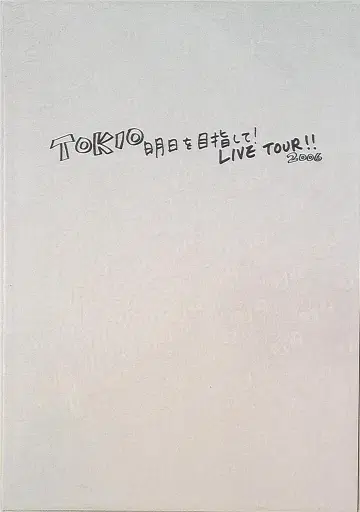 TOKIO 明日を目指して!
LIVE TOUR!!
2006